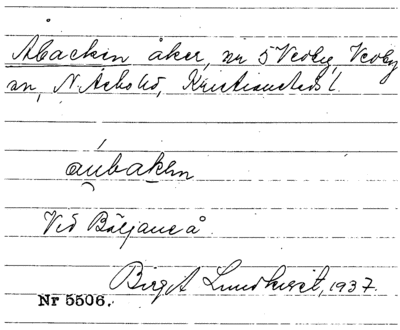 Åbacken åker, nr 5 Vedby, Vedby
sn, N. Åsbo hd, Kristianstads l.
åubakən
Vid Bäljaneå
Birgit Lundkvist, 1937.
Nr 5506.